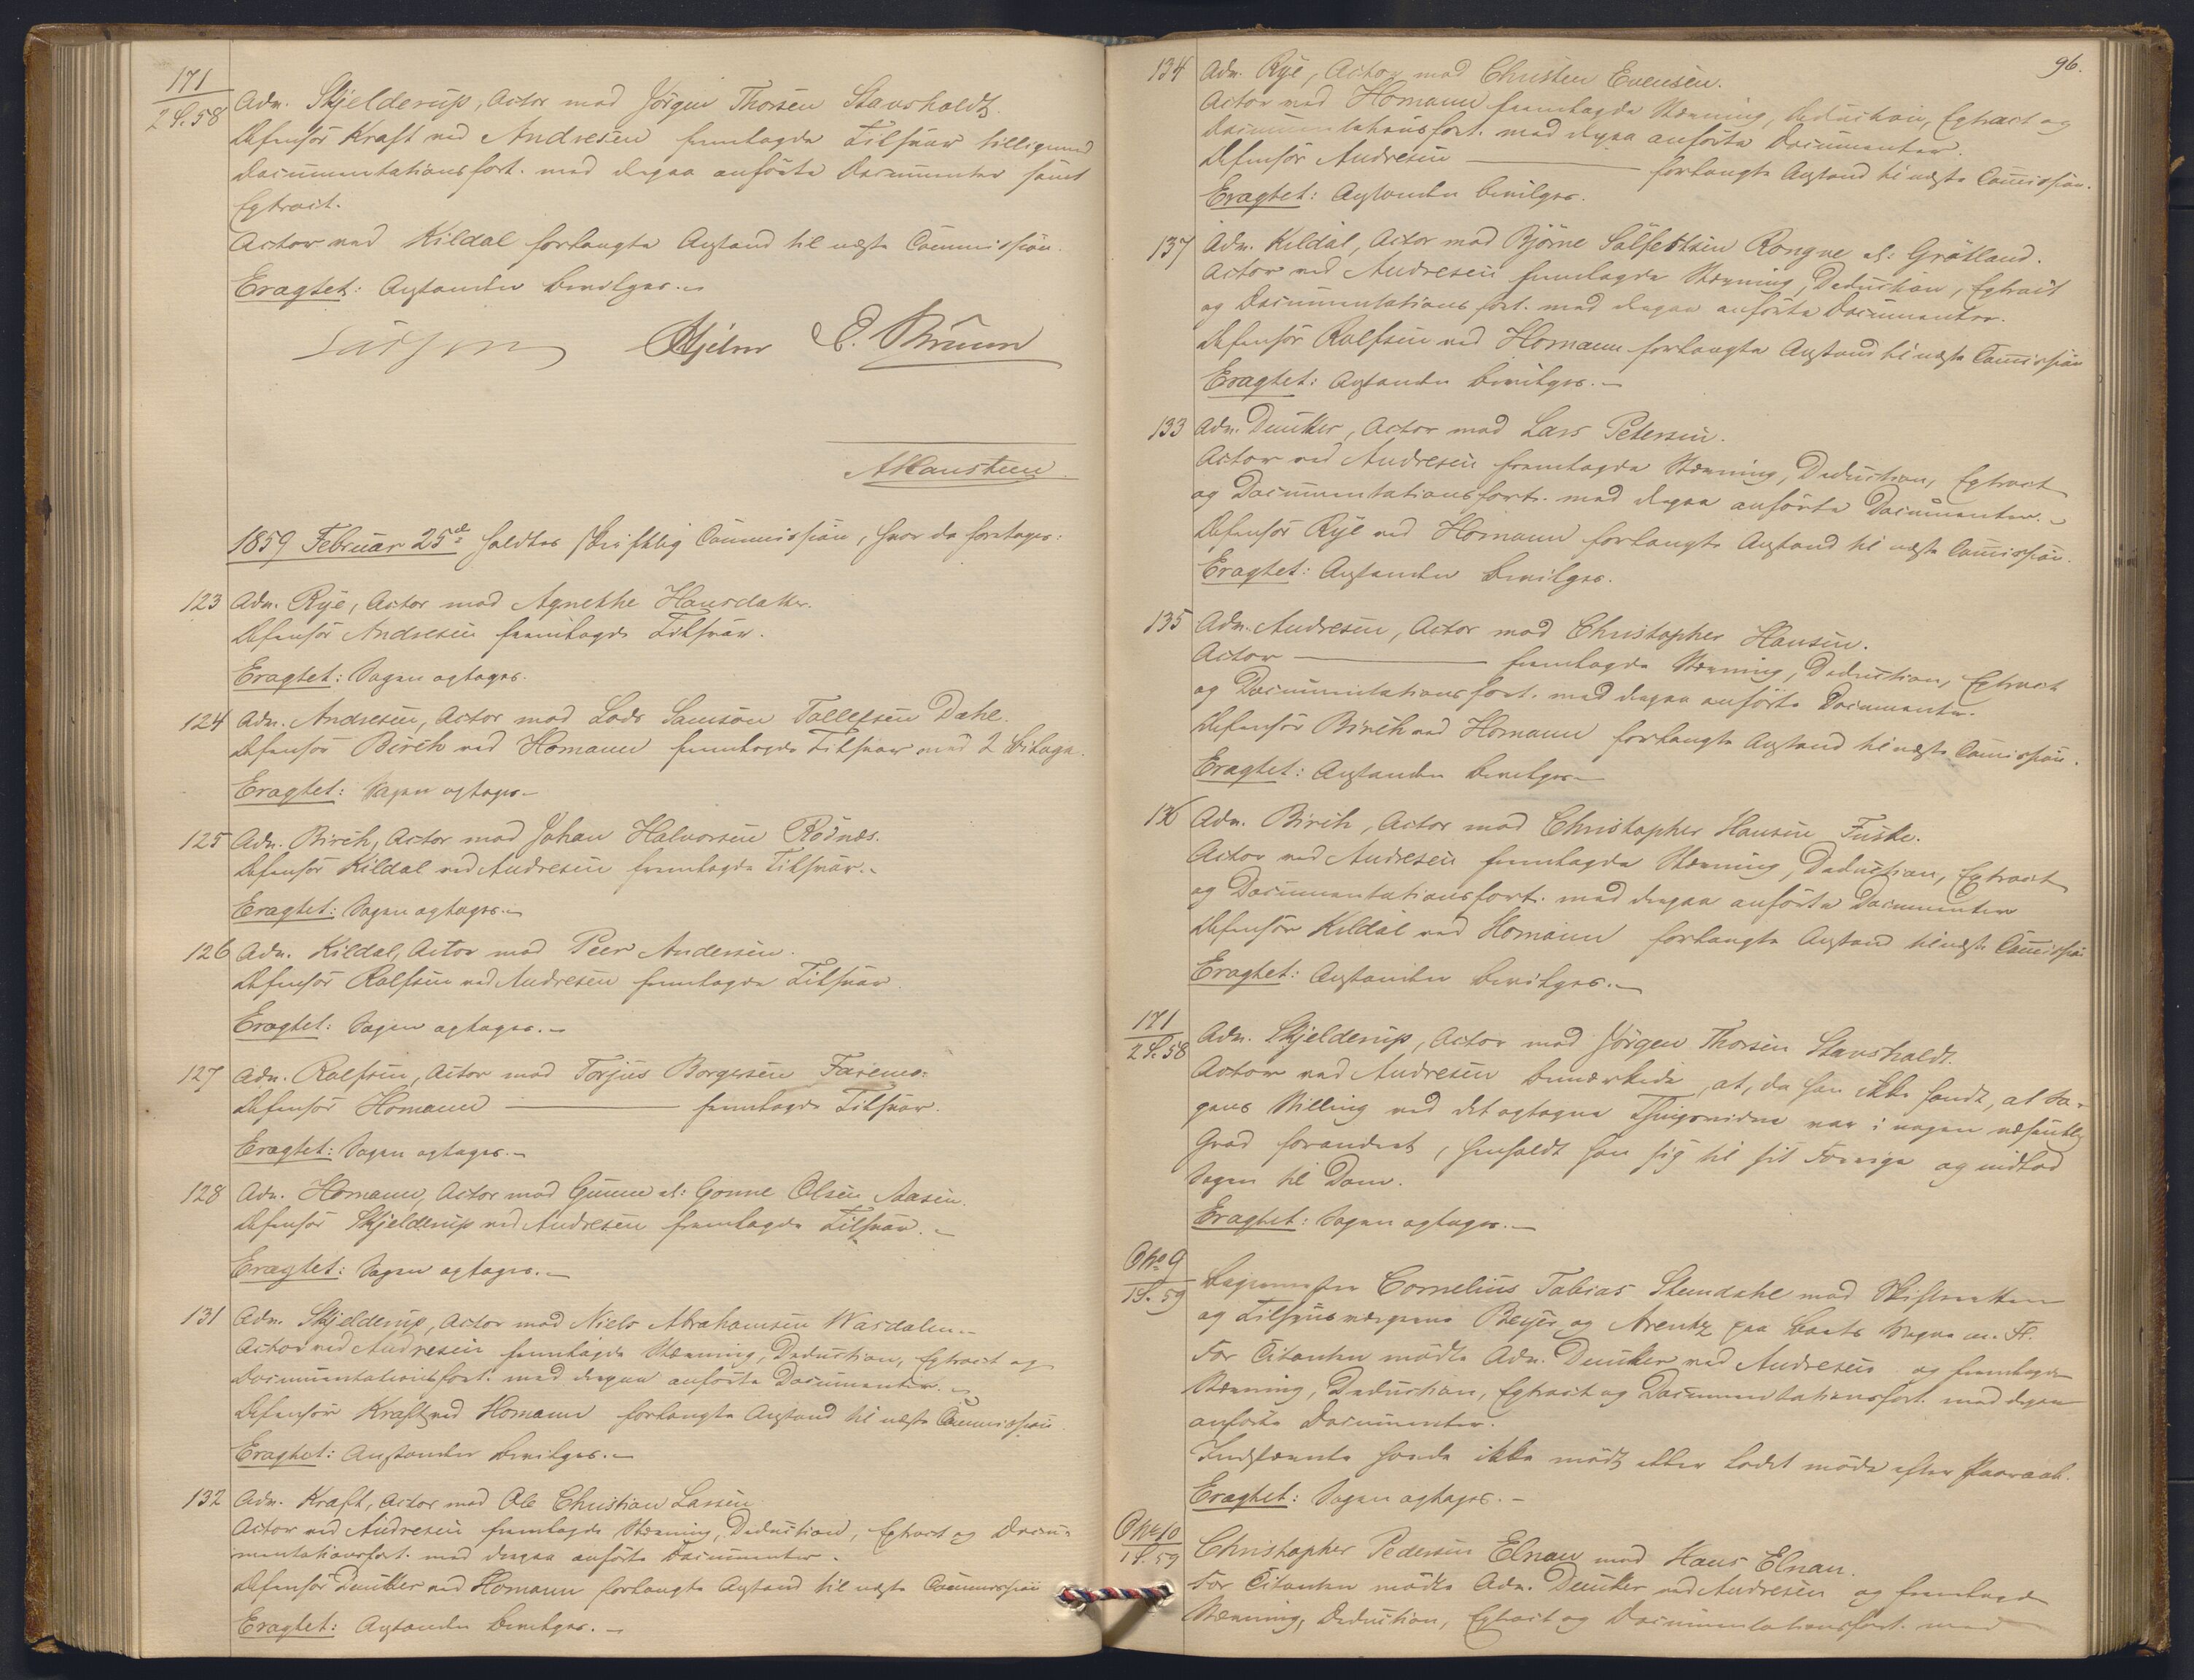 171
2 S. 58
Adv. Skjelderup, Actor mod Jörgen Thorsen Stavsholdt.
Defensor Kraft ved Andresen fremlagde Tilsvar tilligemed
Documentationsfort. med derpaa anförte Documenter samt
Extract.
Actor ved Kildal forlangte Anstand til næste Commission.
Eragtet: Anstanden bevilges.
Hjelm E. Bruun
AHansteen
1859 Februar 25de holdtes skriftlig Commission, hvor da foretages:
123 Adv. Rye, Actor mod Agnethe Hansdatter.
Defensor Andresen fremlagde Tilsvar.
Eragtet: Sagen optages.
124 Adv. Andresen, Actor mod Lods Samson Tollefsen Dahl.
Defensor Birch ved Homann fremlagde Tilsvar med 2 Bilage.
Eragtet: Sagen optages.
125 Adv. Birch, Actor mod Johan Halvorsen Rödnæs.
Defensor Kildal ved Andresen fremlagde Tilsvar.
Eragtet: Sagen optages.
126 Adv. Kildal, Actor mod Peer Andersen.
Defensor Rolfsen ved Andresen fremlagde Tilsvar.
Eragtet: Sagen optages.
127 Adv. Rolfsen, Actor mod Torjus Borgersen Faremo.
Defensor Homann ——— fremlagde Tilsvar.
Eragtet: Sagen optages.
128 Adv. Homann, Actor mod Gunne el: Gonne Olsen Aasen.
Defensor Skjelderup ved Andresen fremlagde Tilsvar.
Eragtet: Sagen optages.
131 Adv. Skjelderup, Actor mod Niels Abrahamsen Wasdalen.
Actor ved Andresen fremlagde Stævning, Deduction, Extract og
Documentationsfort. med derpaa anförte Documenter.
Defensor Kraft ved Homann forlangte Anstand til næste Commission
Eragtet: Anstanden bevilges.
132 Adv. Kraft, Actor mod Ole Christian Larsen
Actor ved Andresen fremlagde Stævning, Deduction, Extract og Docu-
mentationsfort. med derpaa anförte Documenter.
Defensor Dunker ved Homann forlangte Anstand til næste Commission
Eragtet: Anstanden bevilges.
96.
134 Adv. Rye, Actor mod Christen Evensen.
Actor ved Homann fremlagde Stævning, Deduction, Extract og
Documentationsfort. med derpaa anförte Documenter.
Defensor Andresen ——— forlangte Anstand til næste Commission.
Eragtet: Anstanden bevilges.
137 Adv. Kildal, Actor mod Björne Sölfestsen Rongne el: Grötland.
Actor ved Andresen fremlagde Stævning, Deduction, Extract
og Documentationsfort. med derpaa anförte Documenter.
Defensor Rolfsen ved Homann forlangte Anstand til næste Commission
Eragtet: Anstanden bevilges.
133 Adv. Dunker, Actor mod Lars Petersen.
Actor ved Andresen fremlagde Stævning, Deduction, Extract
og Documentationsfort. med derpaa anförte Documenter.
Defensor Rye ved Homann forlangte Anstand til næste Commission.
Eragtet: Anstanden bevilges.
135 Adv. Andresen, Actor mod Christopher Hansen.
Actor ——— fremlagde Stævning, Deduction, Extract
og Documentationsfort. med derpaa anförte Documenter.
Defensor Birch ved Homann forlangte Anstand til næste Commission.
Eragtet: Anstanden bevilges
136 Adv. Birch, Actor mod Christopher Hansen Fuske.
Actor ved Andresen fremlagde Stævning, Deduction, Extract
og Documentationsfort. med derpaa anförte Documenter
Defensor Kildal ved Homann forlangte Anstand til næste Commission
Eragtet: Anstanden bevilges.
171
2 S. 58
Adv. Skjelderup, Actor mod Jörgen Thorsen Stavsholdt.
Actor ved Andresen bemærkede, at, da han ikke fandt, at Sa-
gens Stilling ved det optagne Thingsvidne var i nogen væsentlig
Grad forandret, henholdt han sig til sit Forrige og indlod
Sagen til Dom.
Eragtet: Sagen optages.
O No 9
1 S. 59
Cornelius Tobias Stemdahl mod Skifteretten
og Tilsynsværgerne Beyer og Arentz paa Boets Vegne m. Fl.
For Citanten mödte Adv. Dunker ved Andresen og fremlagde
Stævning, Deduction, Extract og Documentationsfort. med derpaa
anförte Documenter.
Indstævnte havde ikke mödt eller ladet möde efter Paaraab.
Eragtet: Sagen optages.
O No 10
1 S. 59
Christopher Pedersen Elnan mod Hans Elnan.
For Citanten mödte Adv. Dunker ved Andresen og fremlagde
Stævning, Deduction, Extract og Documentationsfort. med